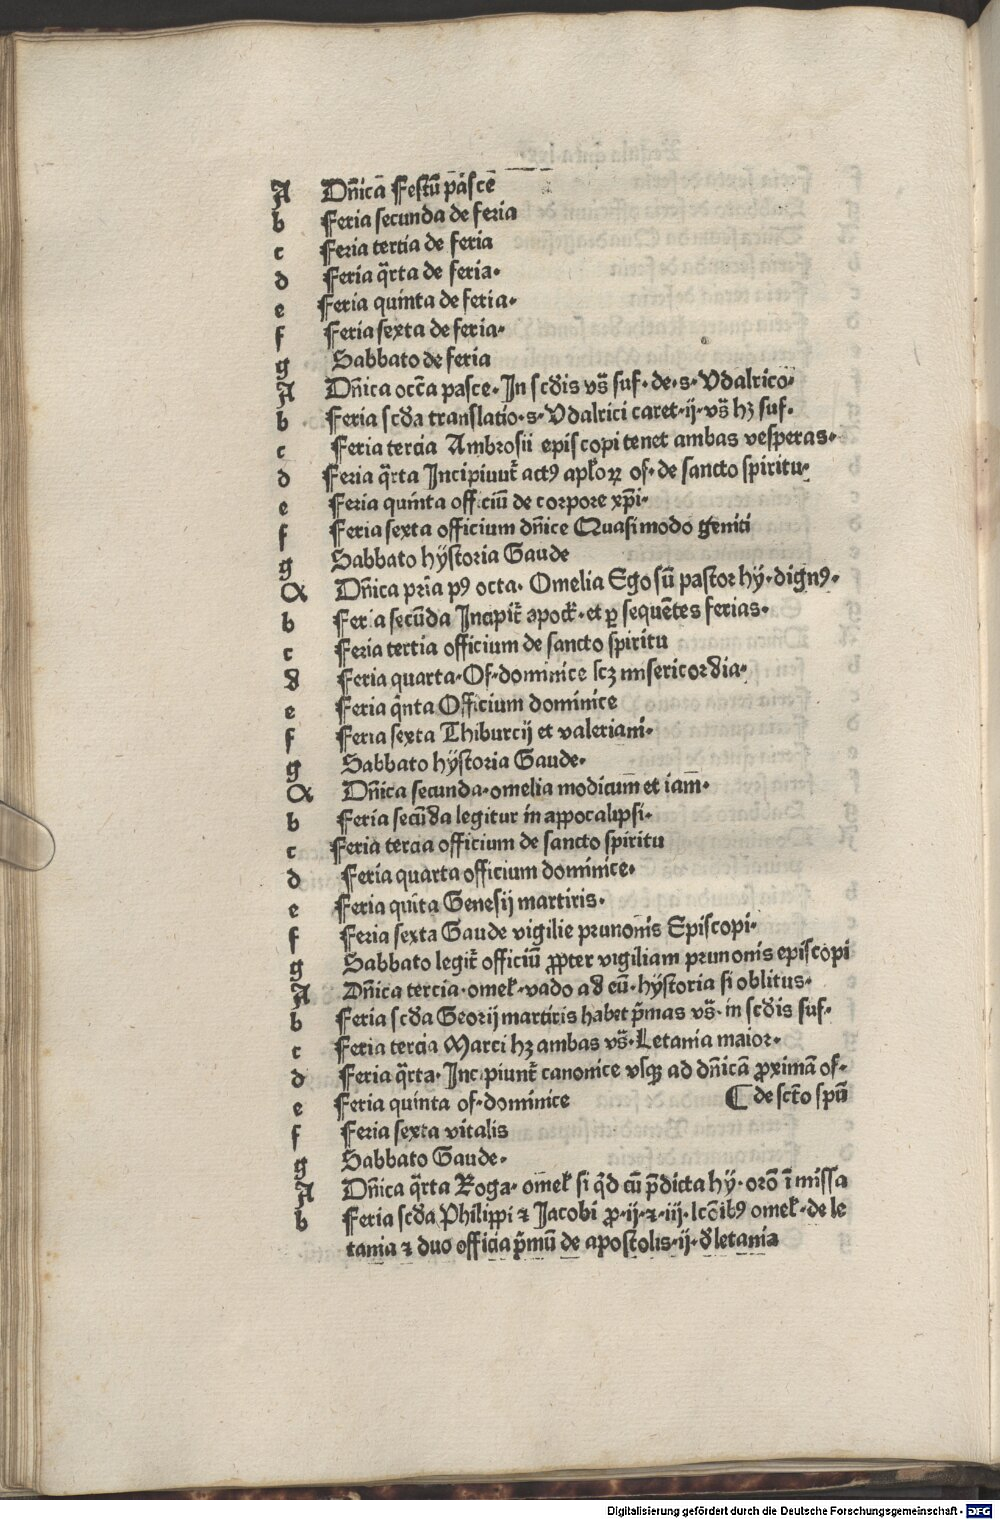 A Dn̄icā Festū pasce
b Feria secunda de feria
c Feria tertia de feria
d Feria q̄rta de feria.
e Feria quinta de feria.
f Feria sexta de feria.
g Sabbato de feria
A Dn̄ica octa pasce. In scd̄is vs̄ suf. de. s. Vdalrico.
b Feria scd̄a translatio. s. Vdalrici caret. ij. vs̄ hꝫ suf.
c Feria tercia Ambrosii episcopi tenet ambas vesperas.
d Feria q̄rta Incipiuut̄ actꝰ apl̄oꝝ of. de sancto spiritu.
e Feria quinta officiū de corpore xp̄i.
f Feria sexta officium dn̄ice Quasimodo geniti
g Sabbato hÿstoria Gaude
A Dn̄ica prīa pꝰ octa. Omelia Ego sū pastor hÿ. dignꝰ.
b Feria secūda Incipit̄ apock̄. et ꝑ sequētes ferias.
c Feria tertia officium de sancto spiritu
d Feria quarta. Of. dominice scꝫ misericordia.
e Feria q̄nta Officium dominice
f Feria sexta Thiburcij et valeriani.
g Sabbato hÿstoria Gaude.
A Dn̄ica secunda. omelia modicum et iam.
b Feria secūda legitur in appocalipsi.
c Feria tercia officium de sancto spiritu
d Feria quarta officium dominice.
e Feria quita Genesij martiris.
f Feria sexta Gaude vigilie prunonis Episcopi.
g Sabbato legit̄ officiū ꝓpter vigiliam prunonis episcopi
A Dn̄ica tercia. omel̄. vado ad eū. hÿstoria si oblitus.
b Feria scd̄a Georij martiris habet p̄mas vs̄. in scd̄is suf.
c Feria tercia Marci hꝫ ambas vs̄. Letania maior.
d Feria q̄rta. Incipiunt̄ canonice vsqꝫ ad dn̄icā ꝓximā of.
e Feria quinta of. dominice ⸿ de sctō spū
f Feria sexta vitalis
g Sabbato Gaude.
A Dn̄ica q̄rta Roga. omel̄ si q̄d cū p̄dicta hÿ. orō ī missa
b Feria scd̄a Philippi ⁊ Jacobi ꝓ. ij. ⁊. iij. lcōibꝰ omel̄. de le
tania ⁊ duo officia p̄mū de apostolis. ij. d̄ letania
Digitalisierung gefördert durch die Deutsche Forschungsgemeinschaft - DFG